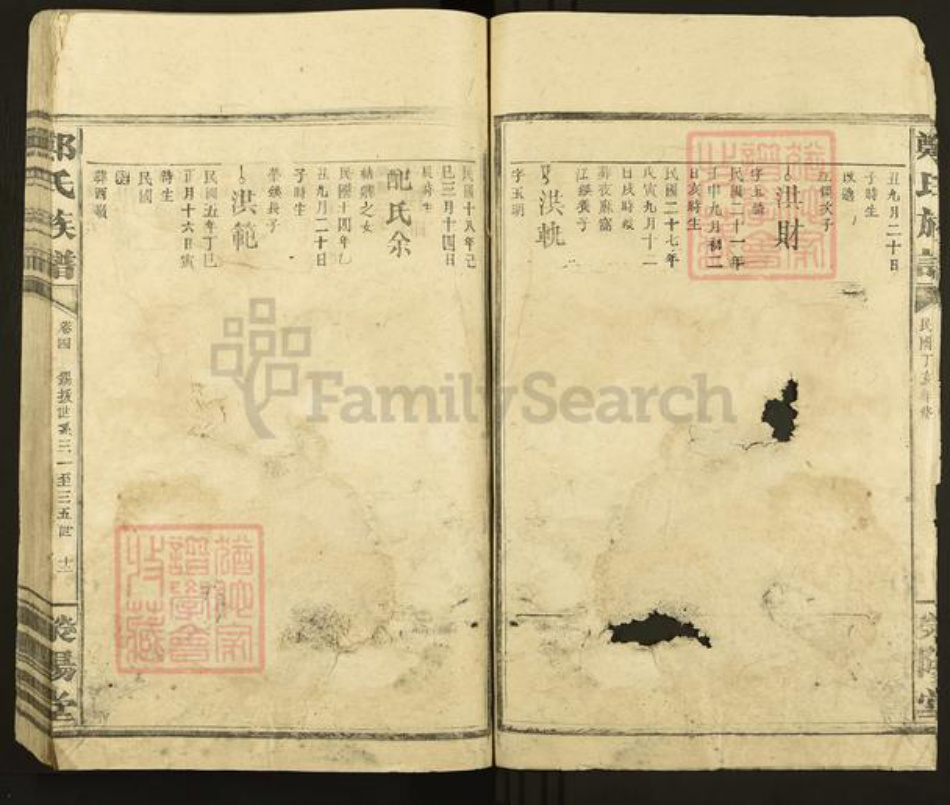 鄭氏族譜
民國丁亥年修
滎陽堂
丑九月二十日
子時生
次子
洪財
民國二十一年
壬申九月初二
日亥時生
民國二十七年
戊寅九月十二
日戌時歿
江
長子
洪軌
字玉明
民國十八年己
巳三月十四日
辰時生
配氏余
之女
民國十四年乙
丑九月二十日
子時生
長子
洪範
民國五年丁巳
正月十六日寅
時生
民國
葬西嶺
鄭氏族譜
卷四
錫振世系三一至三五世
十一
滎陽堂
猶他家譜學會收藏
FamilySearch